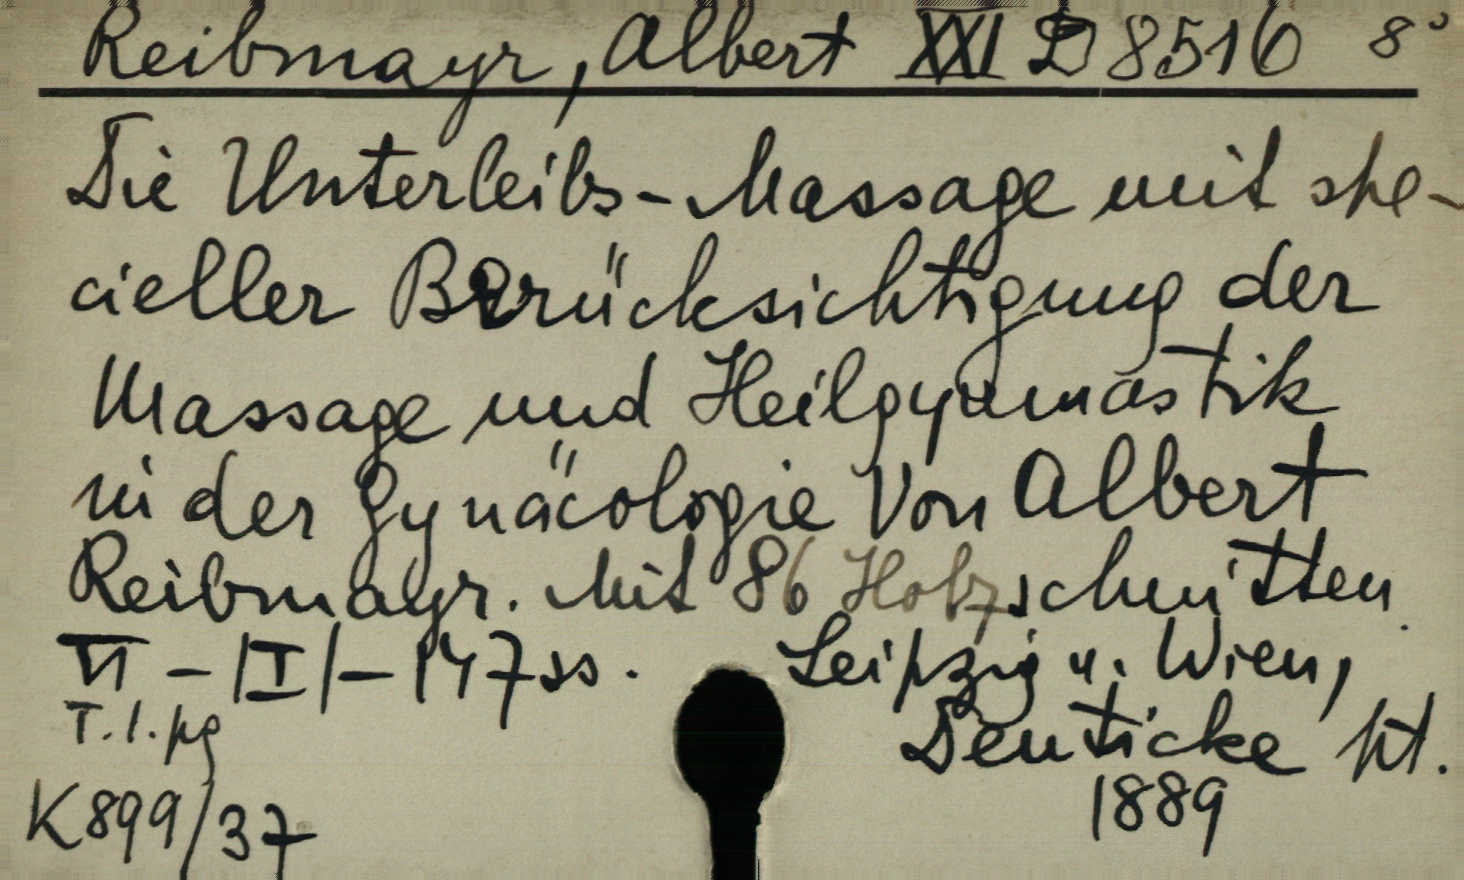 Reibmayr, Albert XXI D 8516 8°
Die Unterleibs-Massage mit spe-
cieller Berücksichtigung der
Massage und Heilgymnastik
in der Gynäcologie Von Albert
Reibmayr. Mit 86 Holzschnitten.
VI - |I| - 147 ss. Leipzig u. Wien,
T. l. pg Deuticke kt.
1889
K 899/37